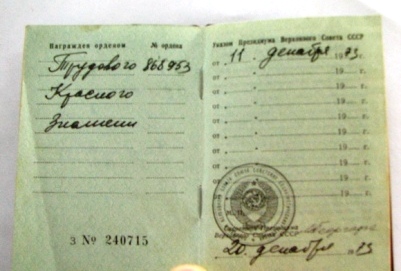 Награжден орденом № ордена
Трудового 868953
Красного
Знамени
З № 240715
Указом Президиума Верховного Совета СССР
от „ 11 " декабря 1973 г.
от „ " 19 г.
от „ " 19 г.
от „ " 19 г.
от „ " 19 г.
от „ " 19 г.
от „ " 19 г.
от „ " 19 г.
М. П.
Секретарь Президиума
Верховного Совета СССР
„20" декабря 1973